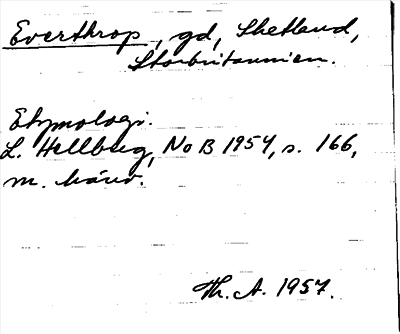 Everthrop, gd, Shetland,
Storbritannien.
Etymologi.
L. Hellberg, NoB 1954, s. 166,
m. hänv.
Th. A. 1957.